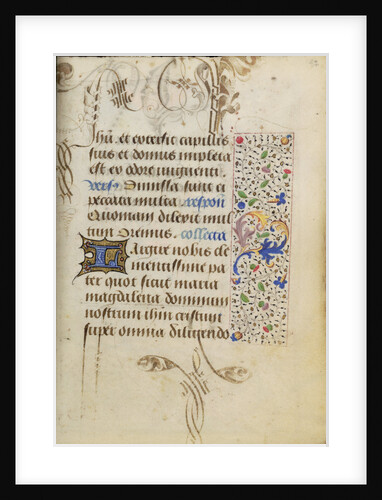 Jhu. et extersit capillis
suis et domus impleta
est ex odore unguenti.
vers. Dimissa sunt ei
peccata multa. respon
Quoniam dilexit mul
tum Oremus. collecta
Largire nobis cle
mentissime pa
ter quot sicut maria
magdalena dominum
nostrum ihm cristum
super omnia diligendo